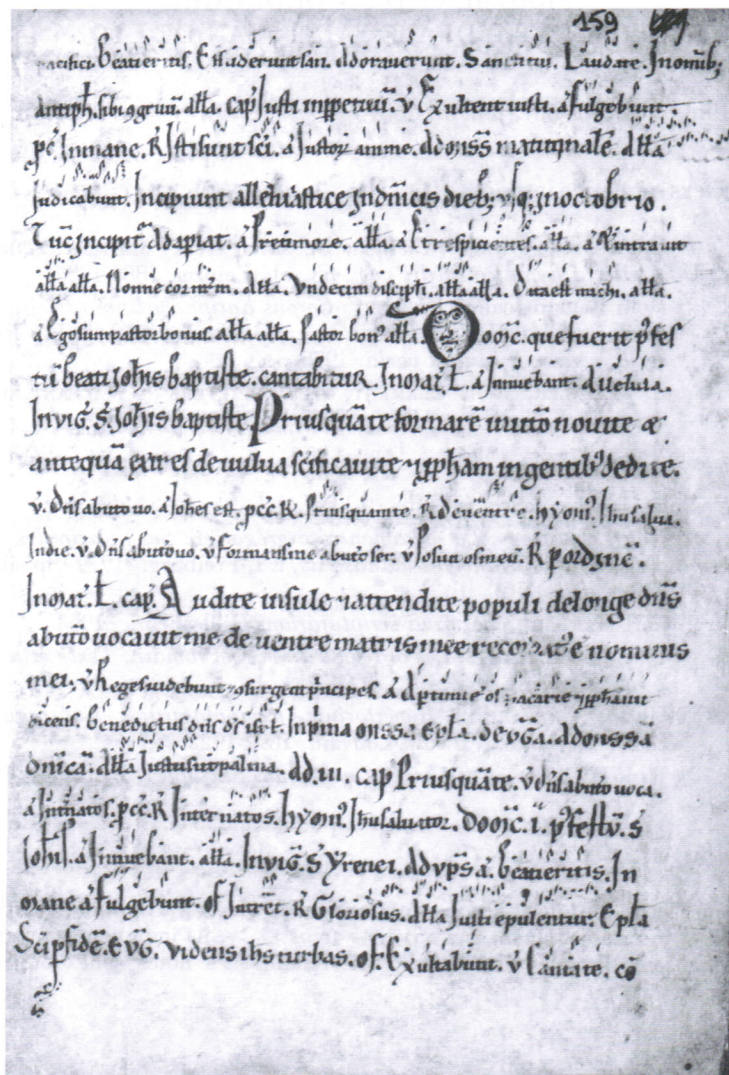 159
pacifici. beati eritis. Et siderunt san. Adoraverunt. Sanctivi. Laudate. In omīb;
antiph̄. sibi ɔgruū. alla. cap̄ Justi inꝑpetuū. v̄ Exultent iusti. a Fulgebunt.
pc̄. In mane. R̄ Isti sunt sc̄i. a Justor̄ anime. Ad onss̄ matutinale. Alla
Judicabunt. Incipiunt alleluiastice in dn̄icis dieb; usq; in octobrio.
Tūc incipit̄ Adaꝑiat. a Pre timore. alla. a Et respicientes. alla. a Qui intrauit
alla alla. Nonne cor nr̄m. Alla. Undecim discipli. alla alla. Data est michi. alla.
a Ego sum pastor bonus. alla alla. Pastor bon᾽ alla. Domīc. que fuerit p᾽ fes
tū beati Joh̄is baptiste. cantabitur. In mat̄. L. a Innuebant. alleluia.
In vig̃. S̄. Joh̄is baptiste Priusquā te formarē in utō novi te &
antequā exires de vulva sc̄ificaui te ⁊ ꝓph̄am in gentib᾽ dedi te.
v̄. Dn̄s ab uto uo. a Joh̄es est. pc̄c̄. R̄. Priusquam te. R̄ De ventre. hymn᾽. Ihu salua.
In die. v̄. Dn̄s ab uto uo. v̄ Formans me ab uto ser. v̄ Posuit os meū. R̄ ꝑ ordinē.
In mat̄. L. cap̄. Audite insule ⁊ attendite populi de longe dn̄s
ab utō vocavit me de ventre matris mee recordat᾽ e nominis
mei. v̄ Reges videbunt ⁊ ɔsurgent p̄ncipes. a Aptum e᾽ os zacarie ⁊ ꝓph̄auit
dicens. benedictus dn̄s ds̄ isrl. In p̄ma onssa Epl̄a. de vg̃a. Ad onssā
dn̄icā. Alla Justus ut palma. Ad. iii. cap̄ Priusquā te. v̄ dn̄s ab uto uoca.
a Int̄ natos. pc̄c̄. R̄ Inter natos. hymn᾽. Ihu saluator. Domīc. i. p᾽ festū. S̄
Joh̄is. a Innuebant. alla. In vig̃. S̄ yrenei. Ad vp̄s a. beati eritis. In
mane a Fulgebunt. Of Intret. R̄ Gloriosus. Alla Justi epulentur. Epl̄a
Sc̄i ꝑ fidē. Evg̃. Videns ihs turbas. of. Exultabunt. v̄ Cantate. cō